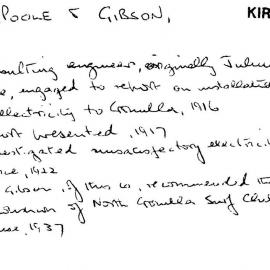 POOLE & GIBSON, KIR
sulting engineer, originally Julius
e, engaged to report on installation
electricity to Cronulla, 1916
ort presented, 1917
estigated unsatisfactory electricity
ice, 1922
Gibson, of this co, recommended the
of North Cronulla Surf Club
use, 1937